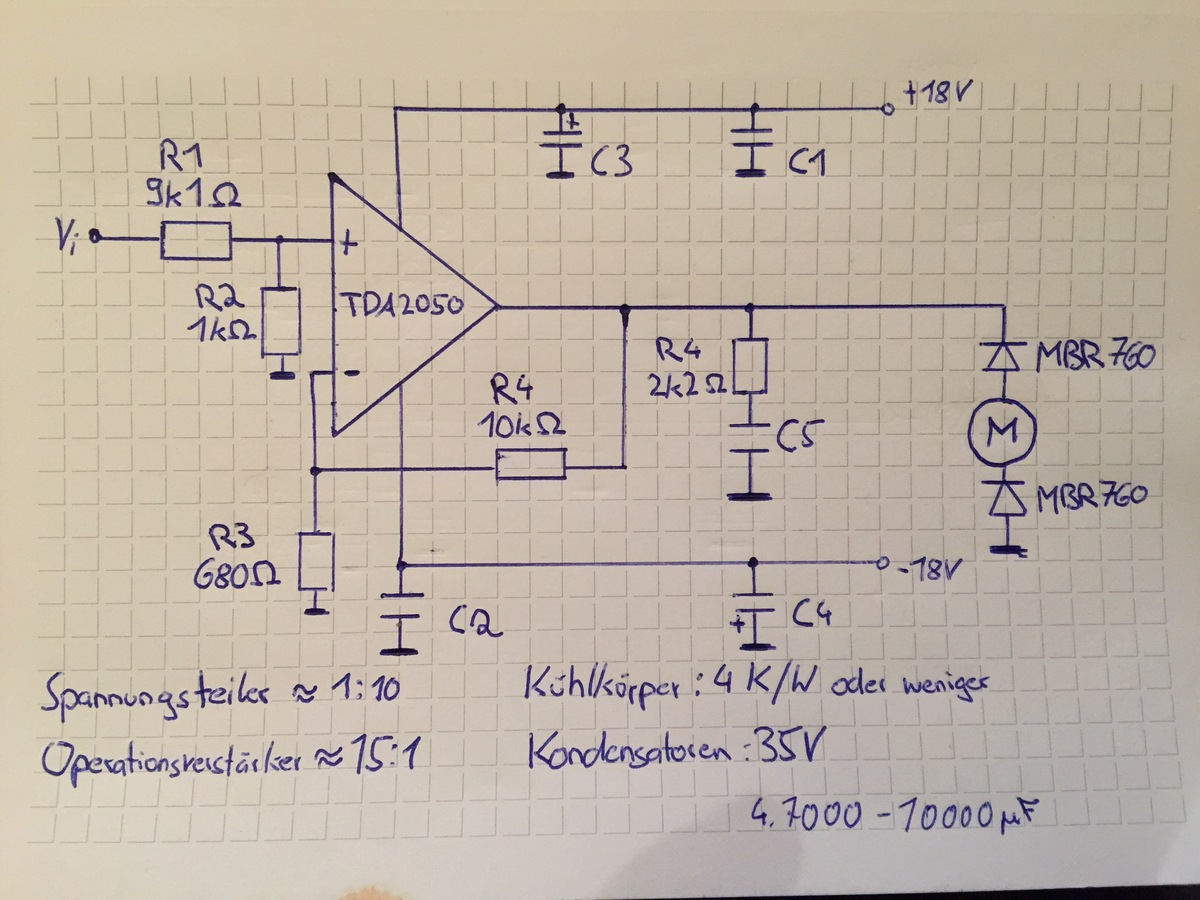 +18V
C3
C1
R1
9k1Ω
Vi
+
R2
1kΩ
TDA2050
-
R4
10kΩ
R4
2k2Ω
C5
MBR760
M
MBR760
R3
680Ω
-18V
C2
+
C4
Spannungsteiler ≈ 1:10
Kühlkörper: 4 K/W oder weniger
Operationsverstärker ≈ 15:1
Kondensatoren: 35V
4.7000 - 10000 µF